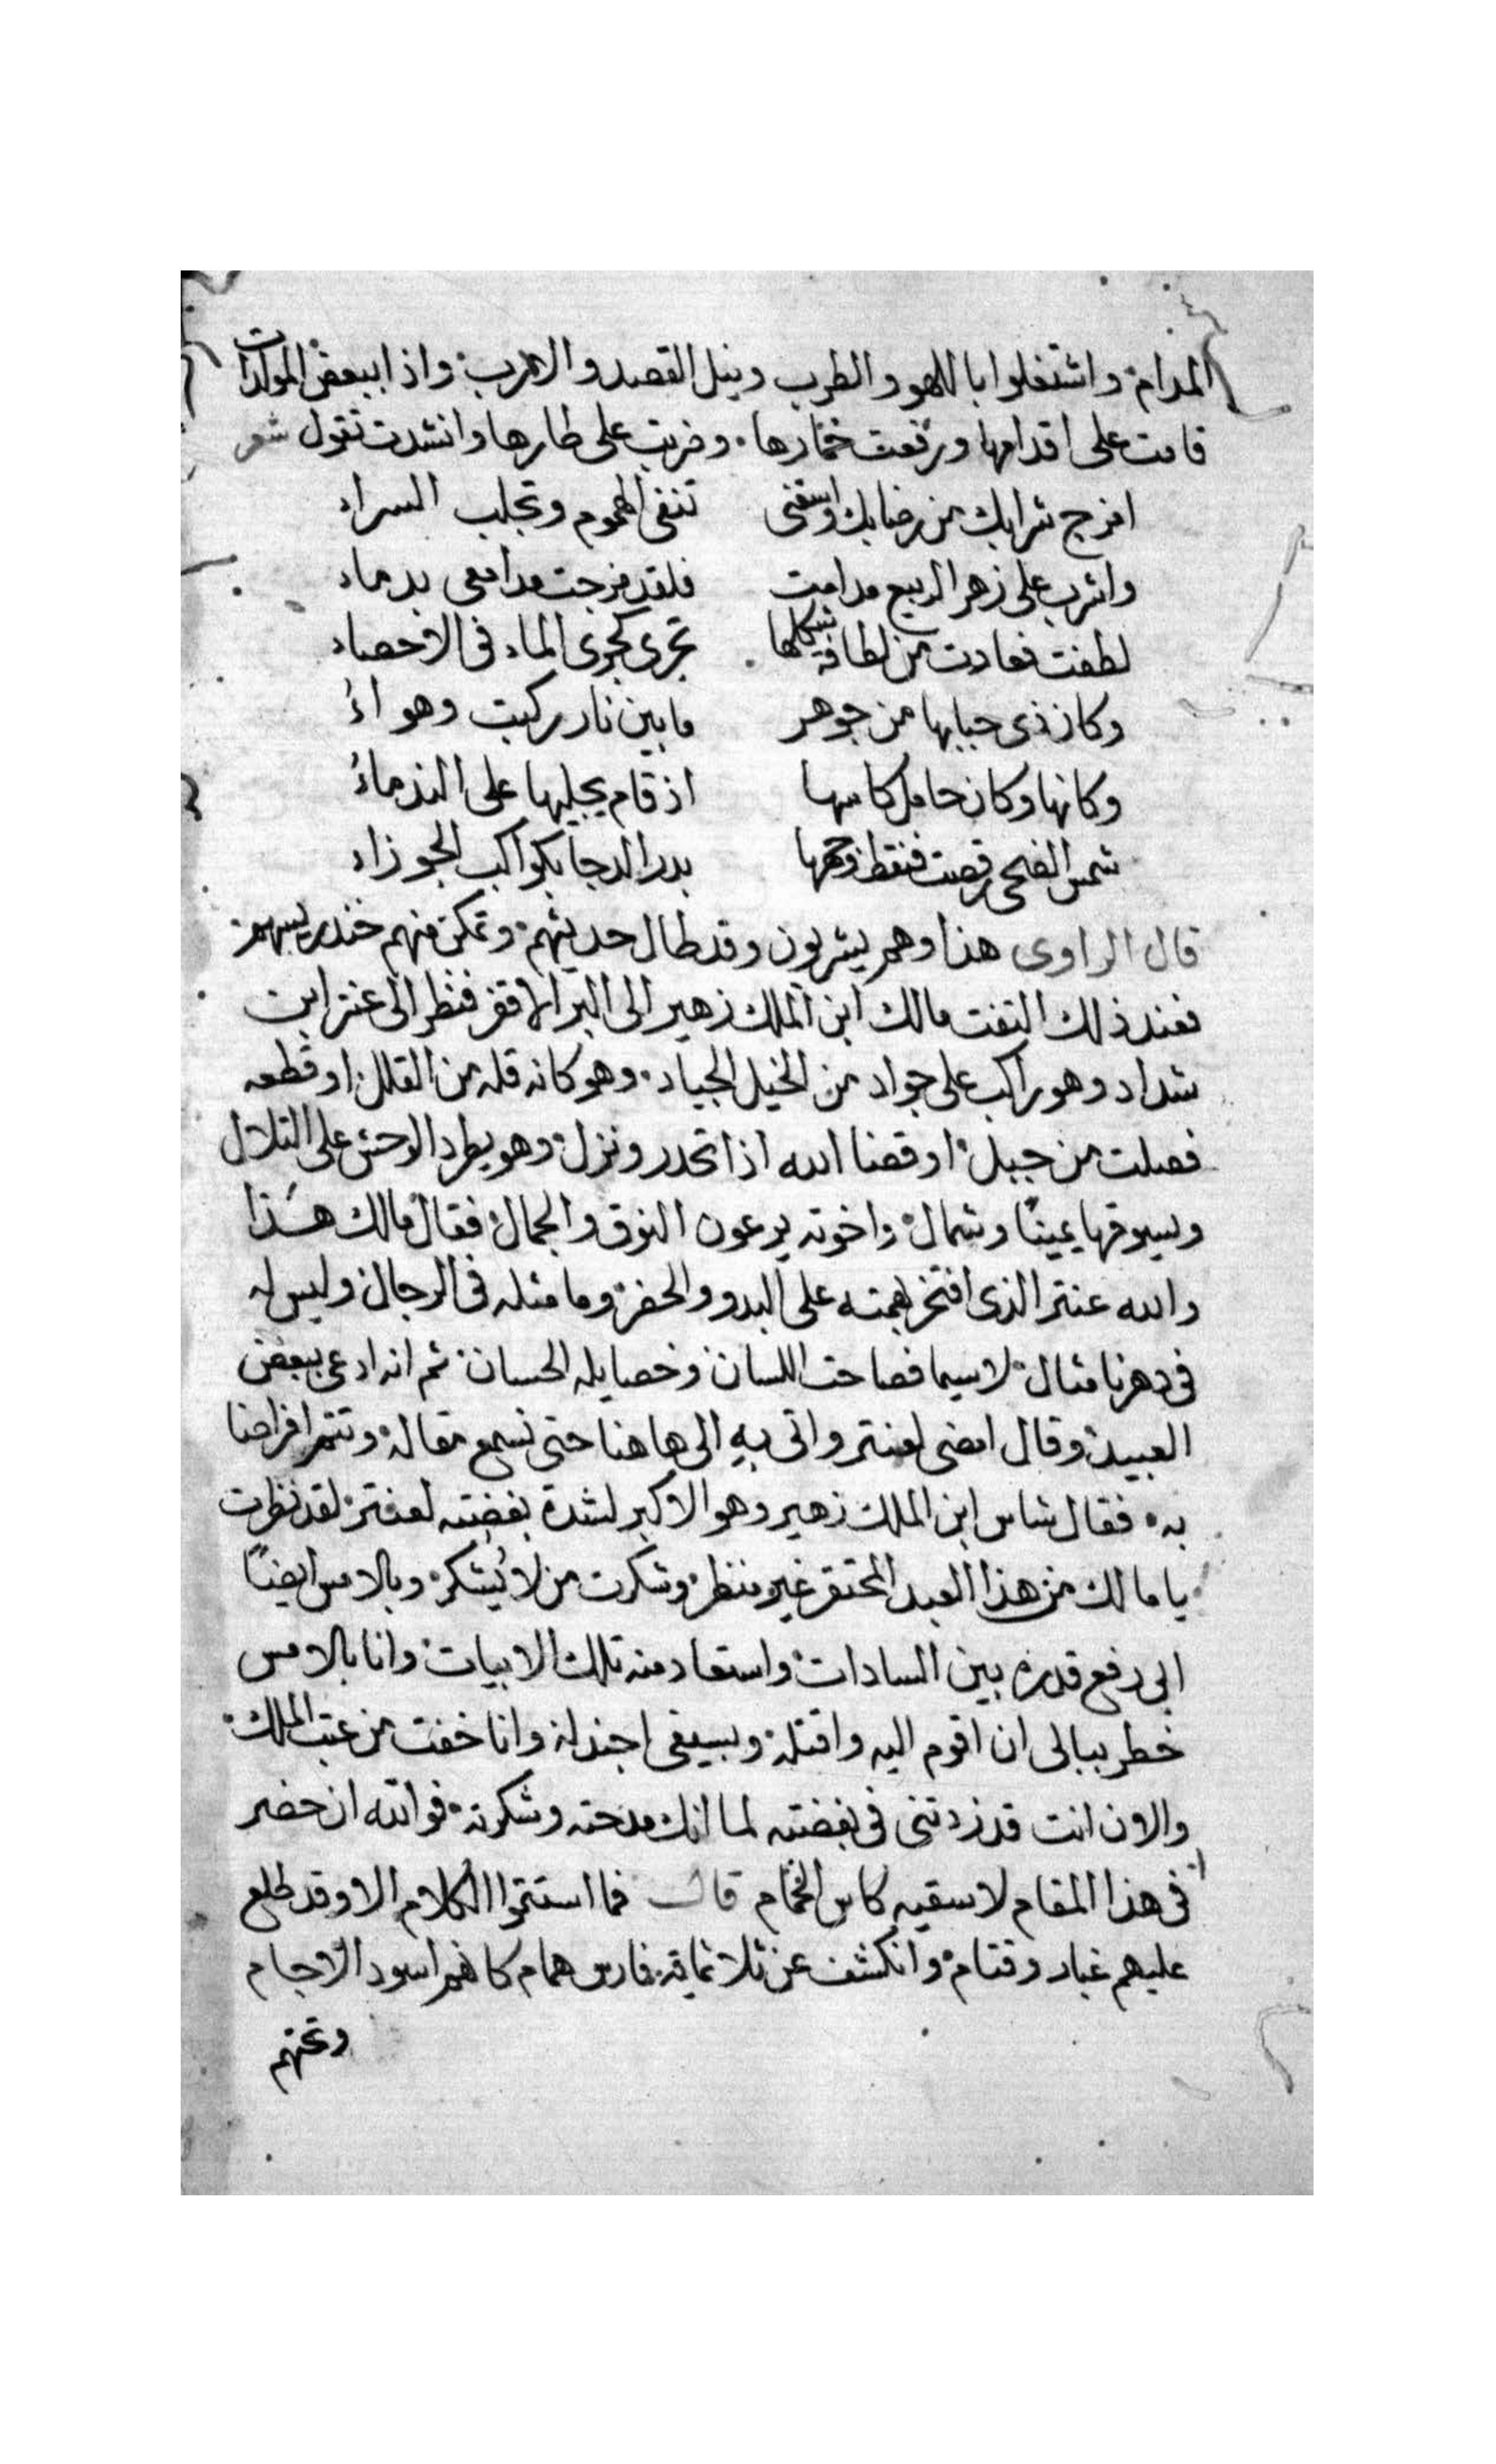 المدام واشتغلوا باللهو والطرب ونيل القصد والارب واذا ببعض المولدات
قامت على اقدامها ورفعت خمارها وضربت على طارها وانشدت تقول شعر
امزج شرابك من رضابك واسقنى تنفى الهموم وتجلب السراء
واشرب على زهر الربيع مدامت فلقد مزجت مدامعى بدماء
لطفت فعادت من لطافة شكلها تجرى كجرى الماء فى الاحصاء
وكان ذى حبابها من جوهر ما بين نار ركبت وهواءُ
وكانها وكان حامل كاسها اذ قام يجليها على الندماءُ
شمس الضحى رقصت فنقط وجهها بدر الدجا بكواكب الجوزاء
قال الراوى هذا وهم يشربون وقد طال حديثهم وتمكن منهم خندريسهم
فعند ذلك التفت مالك ابن الملك زهير الى البر الاقفر فنظر الى عنتر ابن
شداد وهو راكب على جواد من الخيل الجياد وهو كانه قله من القلل او قطعه
فصلت من جبل او قضا الله اذا تحدر ونزل وهو يطرد الوحش على التلال
ويسوقها يمينًا وشمال واخوته يرعون النوق والجمال فقال مالك هذا
والله عنتر الذى افتخر بهمته على البدو والحضر وما مثله فى الرجال وليس له
فى دهرنا مثال لاسيما فصاحت اللسان وخصايله الحسان ثم انه ادعى ببعض
العبيد وقال امضى لعنتر واتى به الى هاهنا حتى نسمع مقاله وتتم افراحنا
به فقال شاس ابن الملك زهير وهو الاكبر لشدة بغضته لعنتر لقد نظرت
يا مالك من هذا العبد المحتقر غير منظر وشكرت من لا يُشكر وبالامس ايضًا
ابى رفع قدره بين السادات واستعاد منه تلك الابيات وانا بالامس
خطر ببالى ان اقوم اليه واقتله وبسيفى اجندله وانا خفت من عتب الملك
والان انت قد زدتنى فى بغضته لما انك مدحته وشكرته فوالله ان حضر
فى هذا المقام لاسقيه كاس الحمام قال فما استتموا الكلام الا وقد طلع
عليهم غبار وقتام وانكشف عن ثلاثماية فارس همام كانهم اسود الاجام
وتحتهم